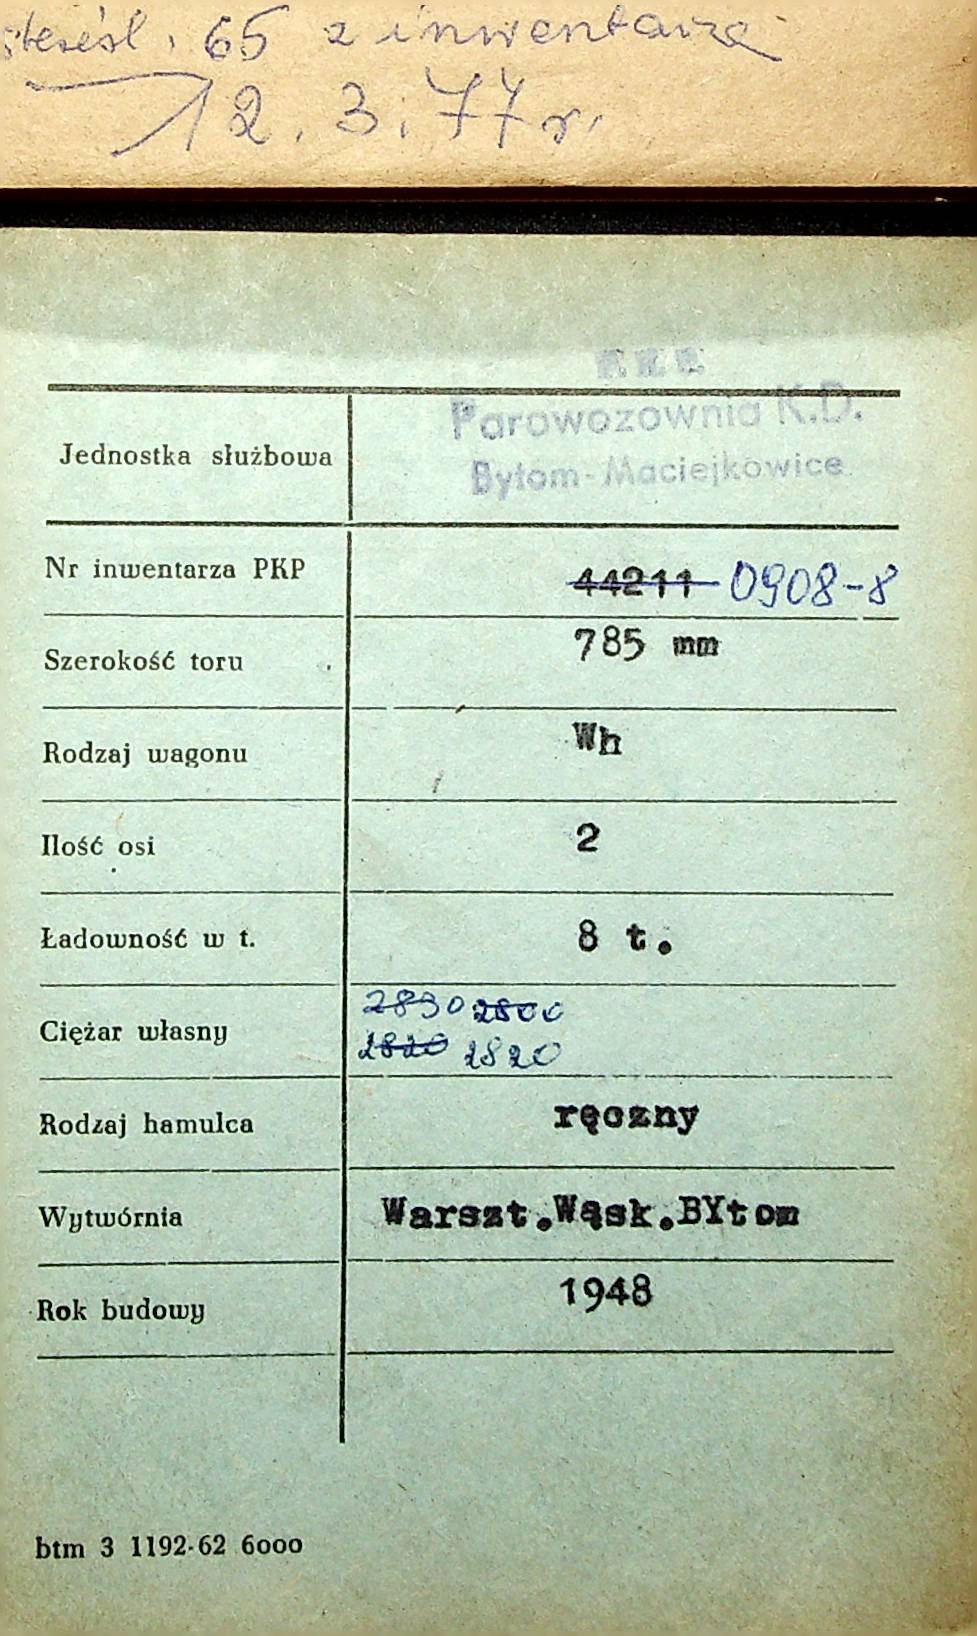 65 z inwentarza
12.3.77 r.
P.K.P.
Parowozownia K.D.
Bytom-Maciejkowice
Jednostka służbowa
Nr inwentarza PKP 44211 0908-8
Szerokość toru 785 mm
Rodzaj wagonu Wh
Ilość osi 2
Ładowność w t. 8 t.
2830 2800
Ciężar własny
2820 2820
Rodzaj hamulca ręczny
Wytwórnia Warszt.Wąsk.BYtom
Rok budowy 1948
btm 3 1192-62 6000